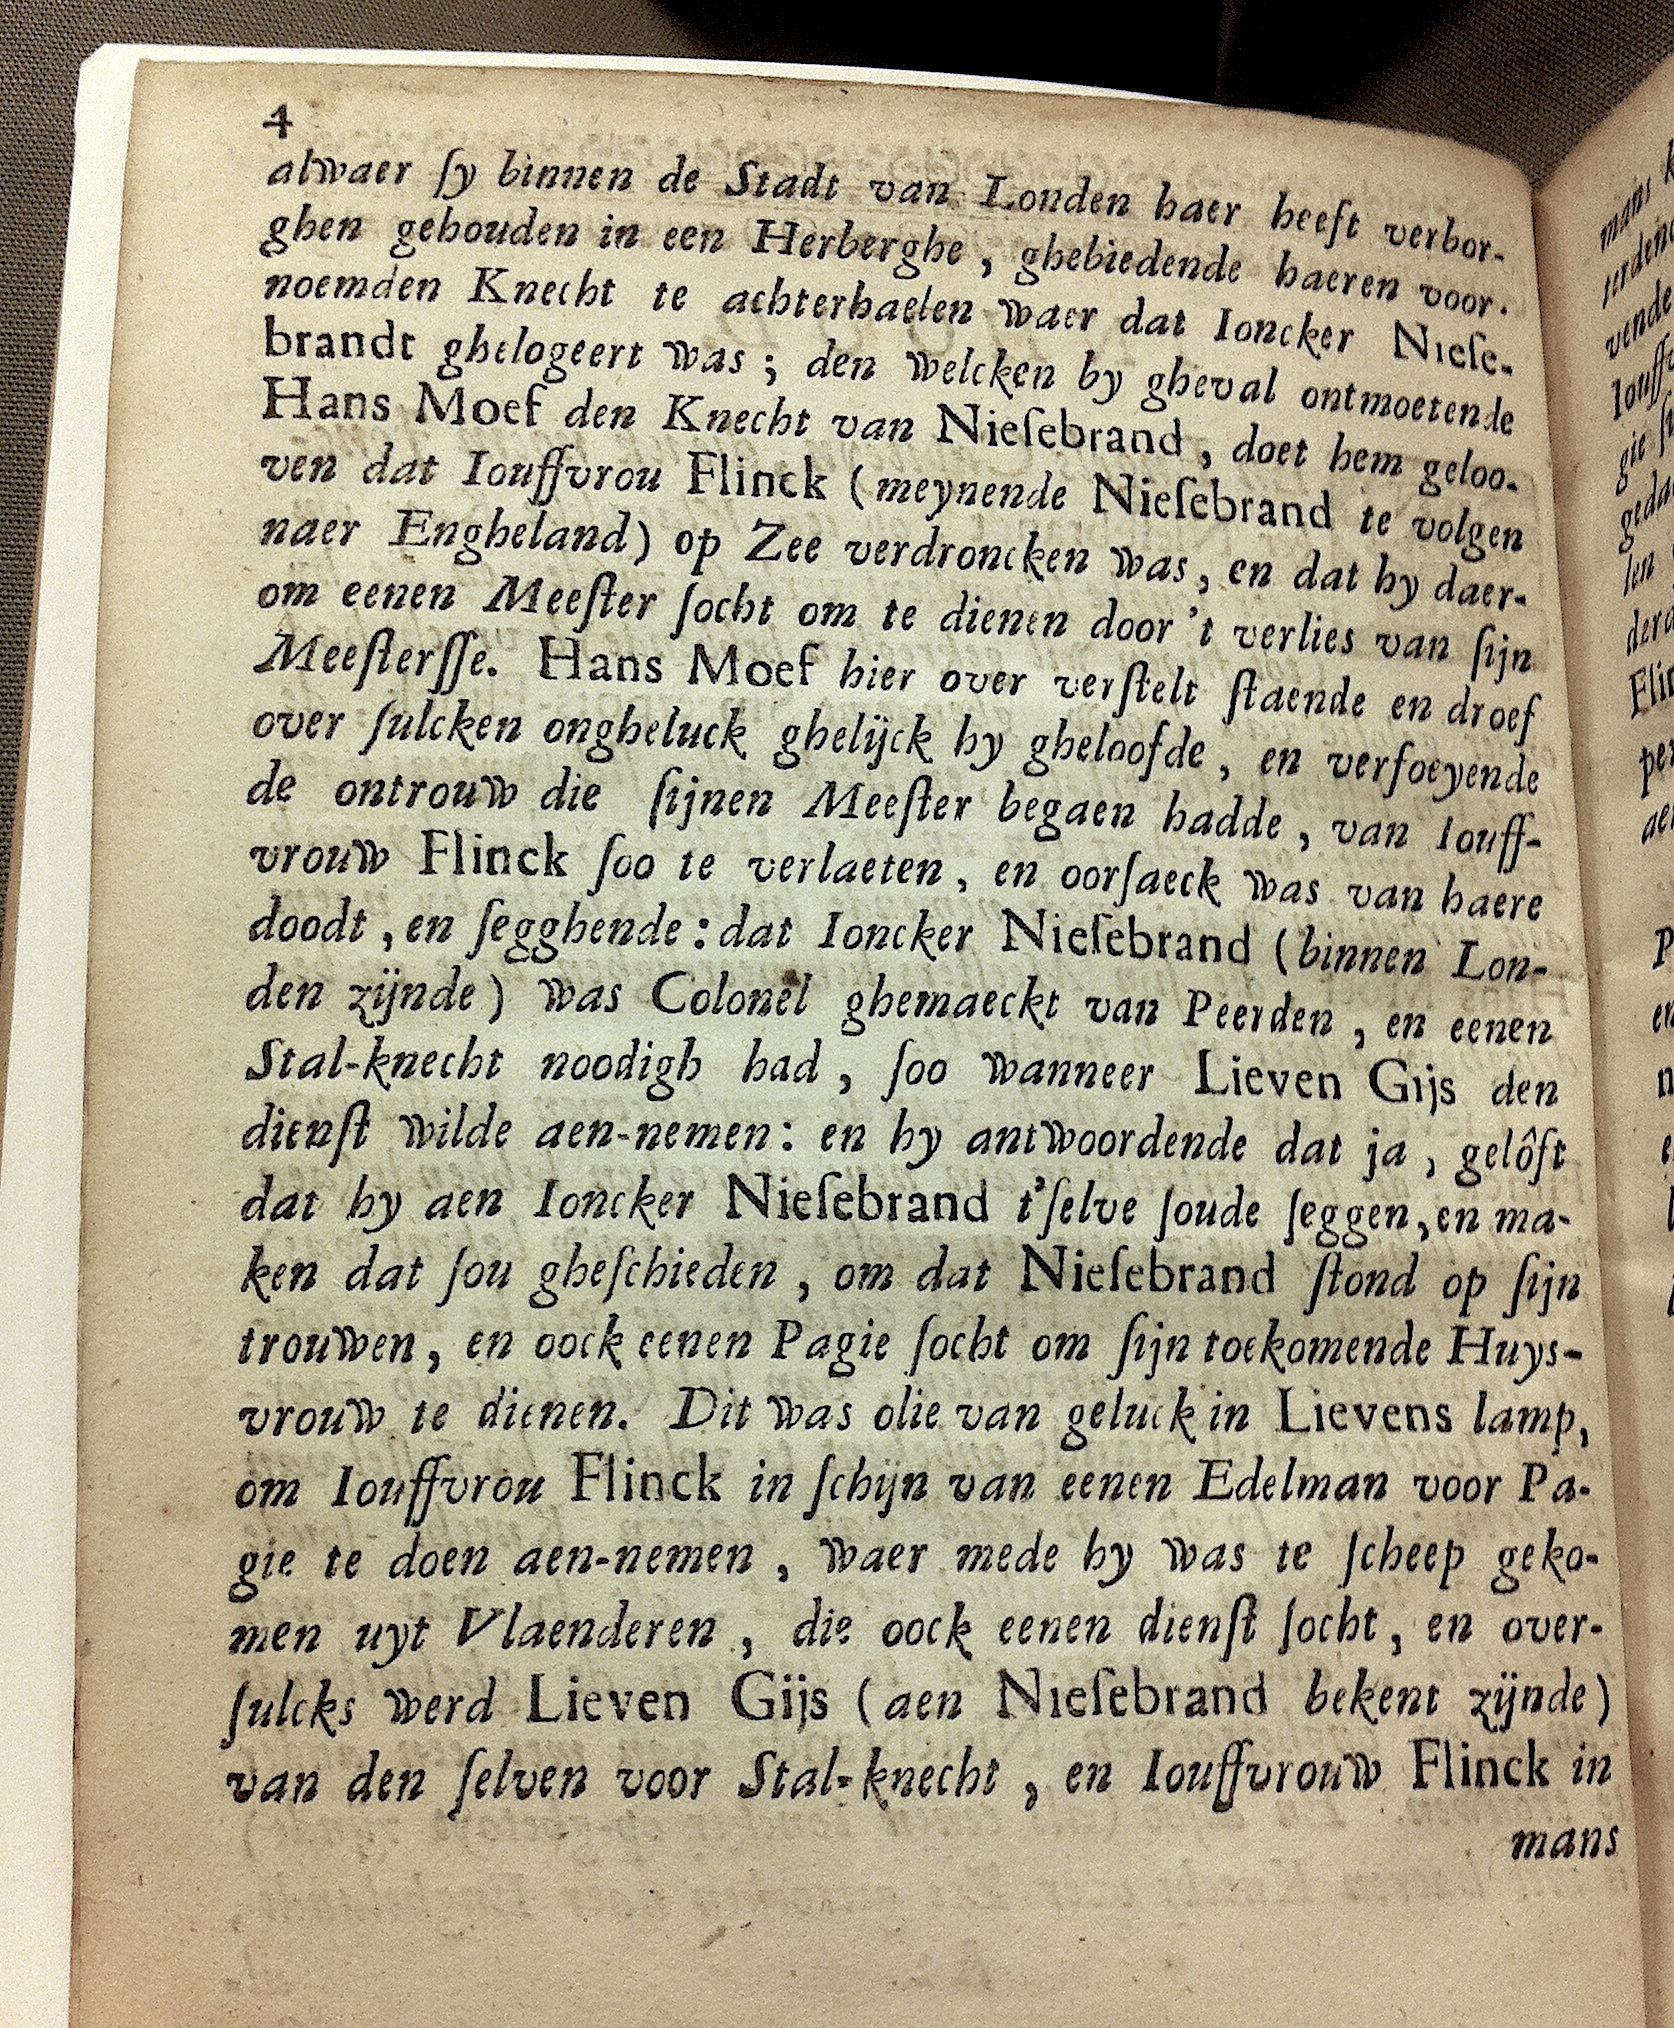 4
alwaer ſy binnen de Stadt van Londen haer heeft verbor-
ghen gehouden in een Herberghe, ghebiedende haeren voor-
noemden Knecht te achterhaelen waer dat Ioncker Nieſe-
brandt ghelogeert was; den welcken by gheval ontmoetende
Hans Moef den Knecht van Nieſebrand, doet hem geloo-
ven dat Iouffvrou Flinck (meynende Nieſebrand te volgen
naer Engheland) op Zee verdroncken was, en dat hy daer-
om eenen Meeſter ſocht om te dienen door 't verlies van ſijn
Meeſterſſe. Hans Moef hier over verſtelt ſtaende en droef
over ſulcken ongheluck ghelijck hy gheloofde, en verfoeyende
de ontrouw die ſijnen Meeſter begaen hadde, van Iouff-
vrouw Flinck ſoo te verlaeten, en oorſaeck was van haere
doodt, en ſegghende: dat Ioncker Nieſebrand (binnen Lon-
den zijnde) was Colonel ghemaeckt van Peerden, en eenen
Stal-knecht noodigh had, ſoo wanneer Lieven Gijs den
dienſt wilde aen-nemen: en hy antwoordende dat ja, gelôft
dat hy aen Ioncker Nieſebrand t'ſelve ſoude ſeggen, en ma-
ken dat ſou gheſchieden, om dat Nieſebrand ſtond op ſijn
trouwen, en oock eenen Pagie ſocht om ſijn toekomende Huys-
vrouw te dienen. Dit was olie van geluck in Lievens lamp,
om Iouffvrou Flinck in ſchijn van eenen Edelman voor Pa-
gie te doen aen-nemen, waer mede hy was te ſcheep geko-
men uyt Vlaenderen, die oock eenen dienſt ſocht, en over-
ſulcks werd Lieven Gijs (aen Nieſebrand bekent zijnde)
van den ſelven voor Stal-knecht, en Iouffvrouw Flinck in
mans